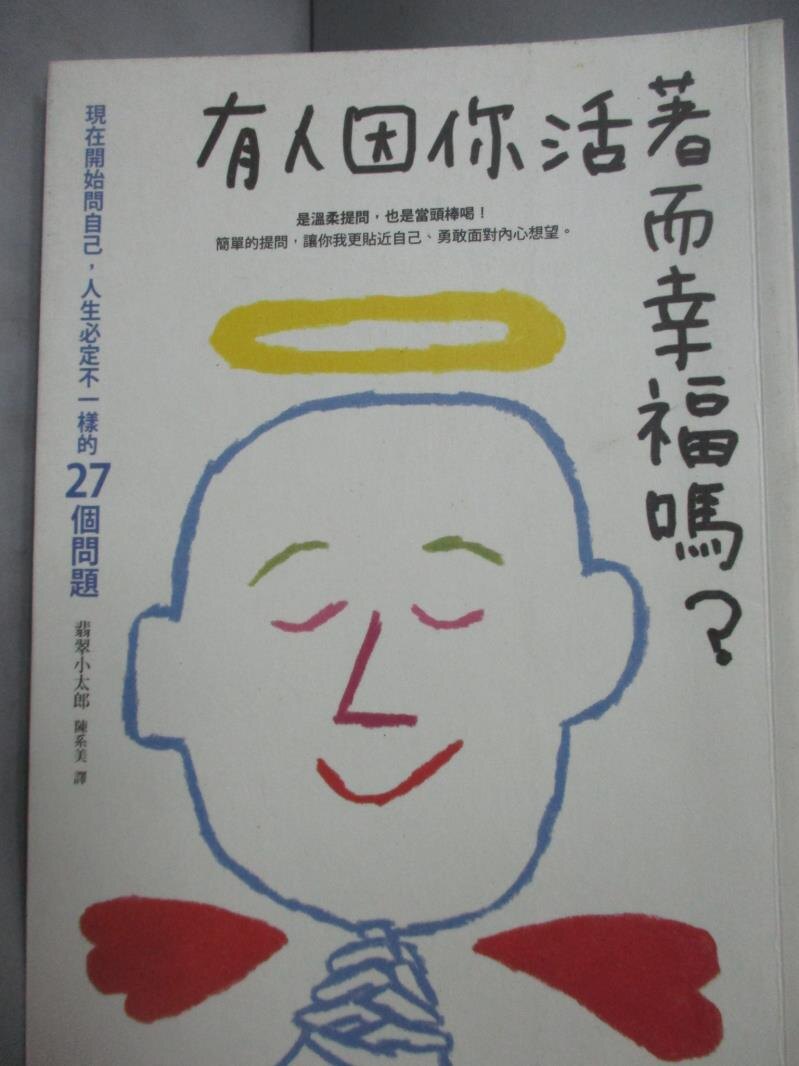 有人因你活著而幸福嗎？
是溫柔提問，也是當頭棒喝！
簡單的提問，讓你我更貼近自己、勇敢面對內心想望。
現在開始問自己，人生必定不一樣的27個問題
翡翠小太郎
陳系美 譯